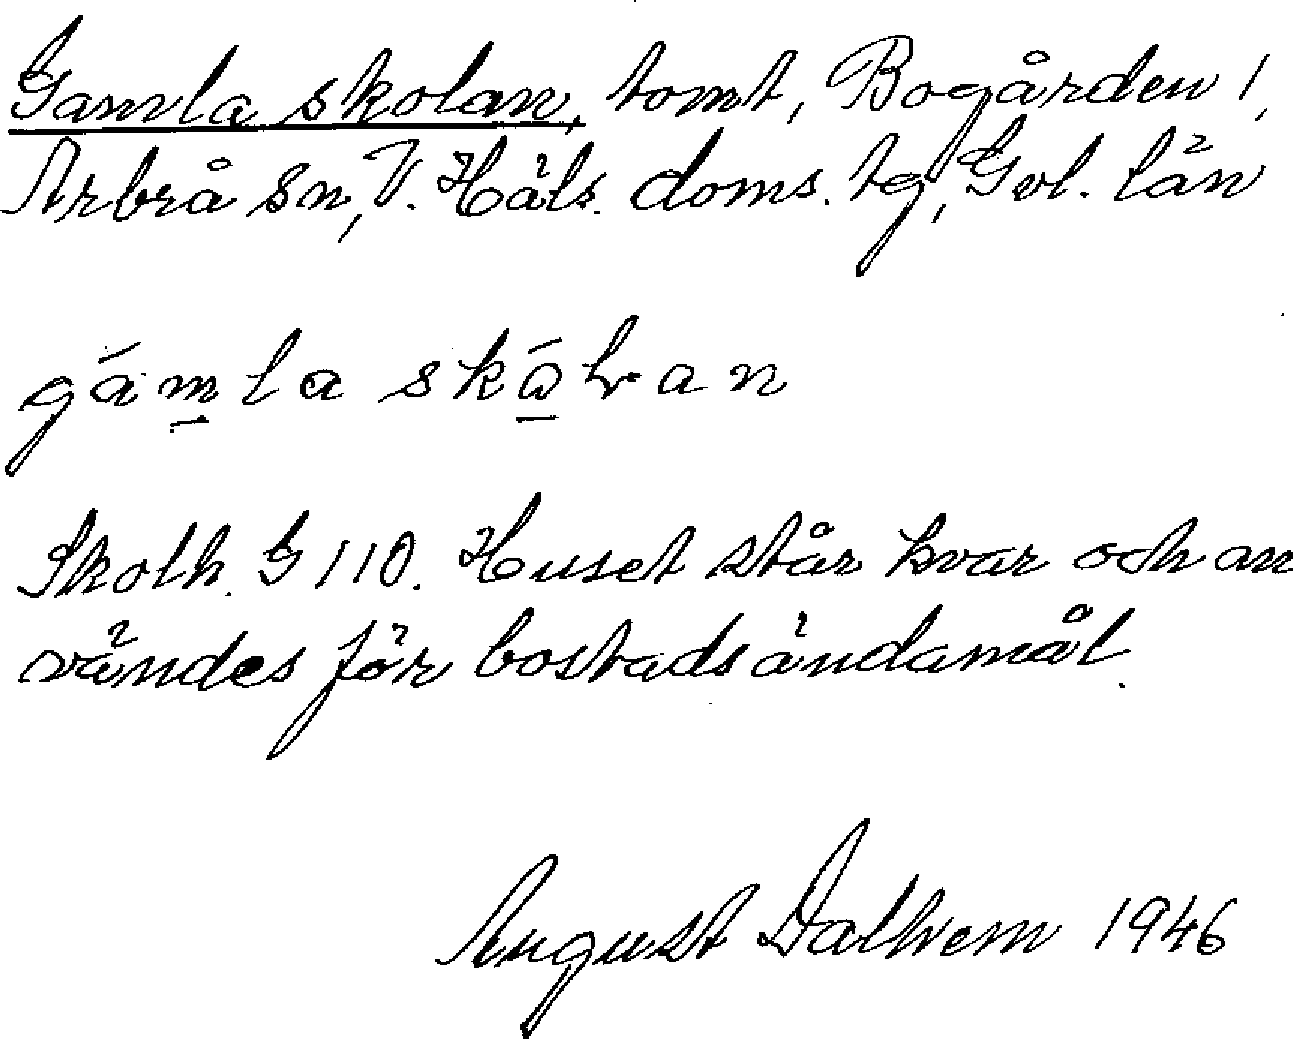 Gamla skolan, tomt, Bogården 1,
Arbrå sn, V. Häls. doms. tg, Gvl. län
gámla
Skolh. G 110. Huset står kvar och an
vändes för bostadsändamål.
August Dalhem 1946